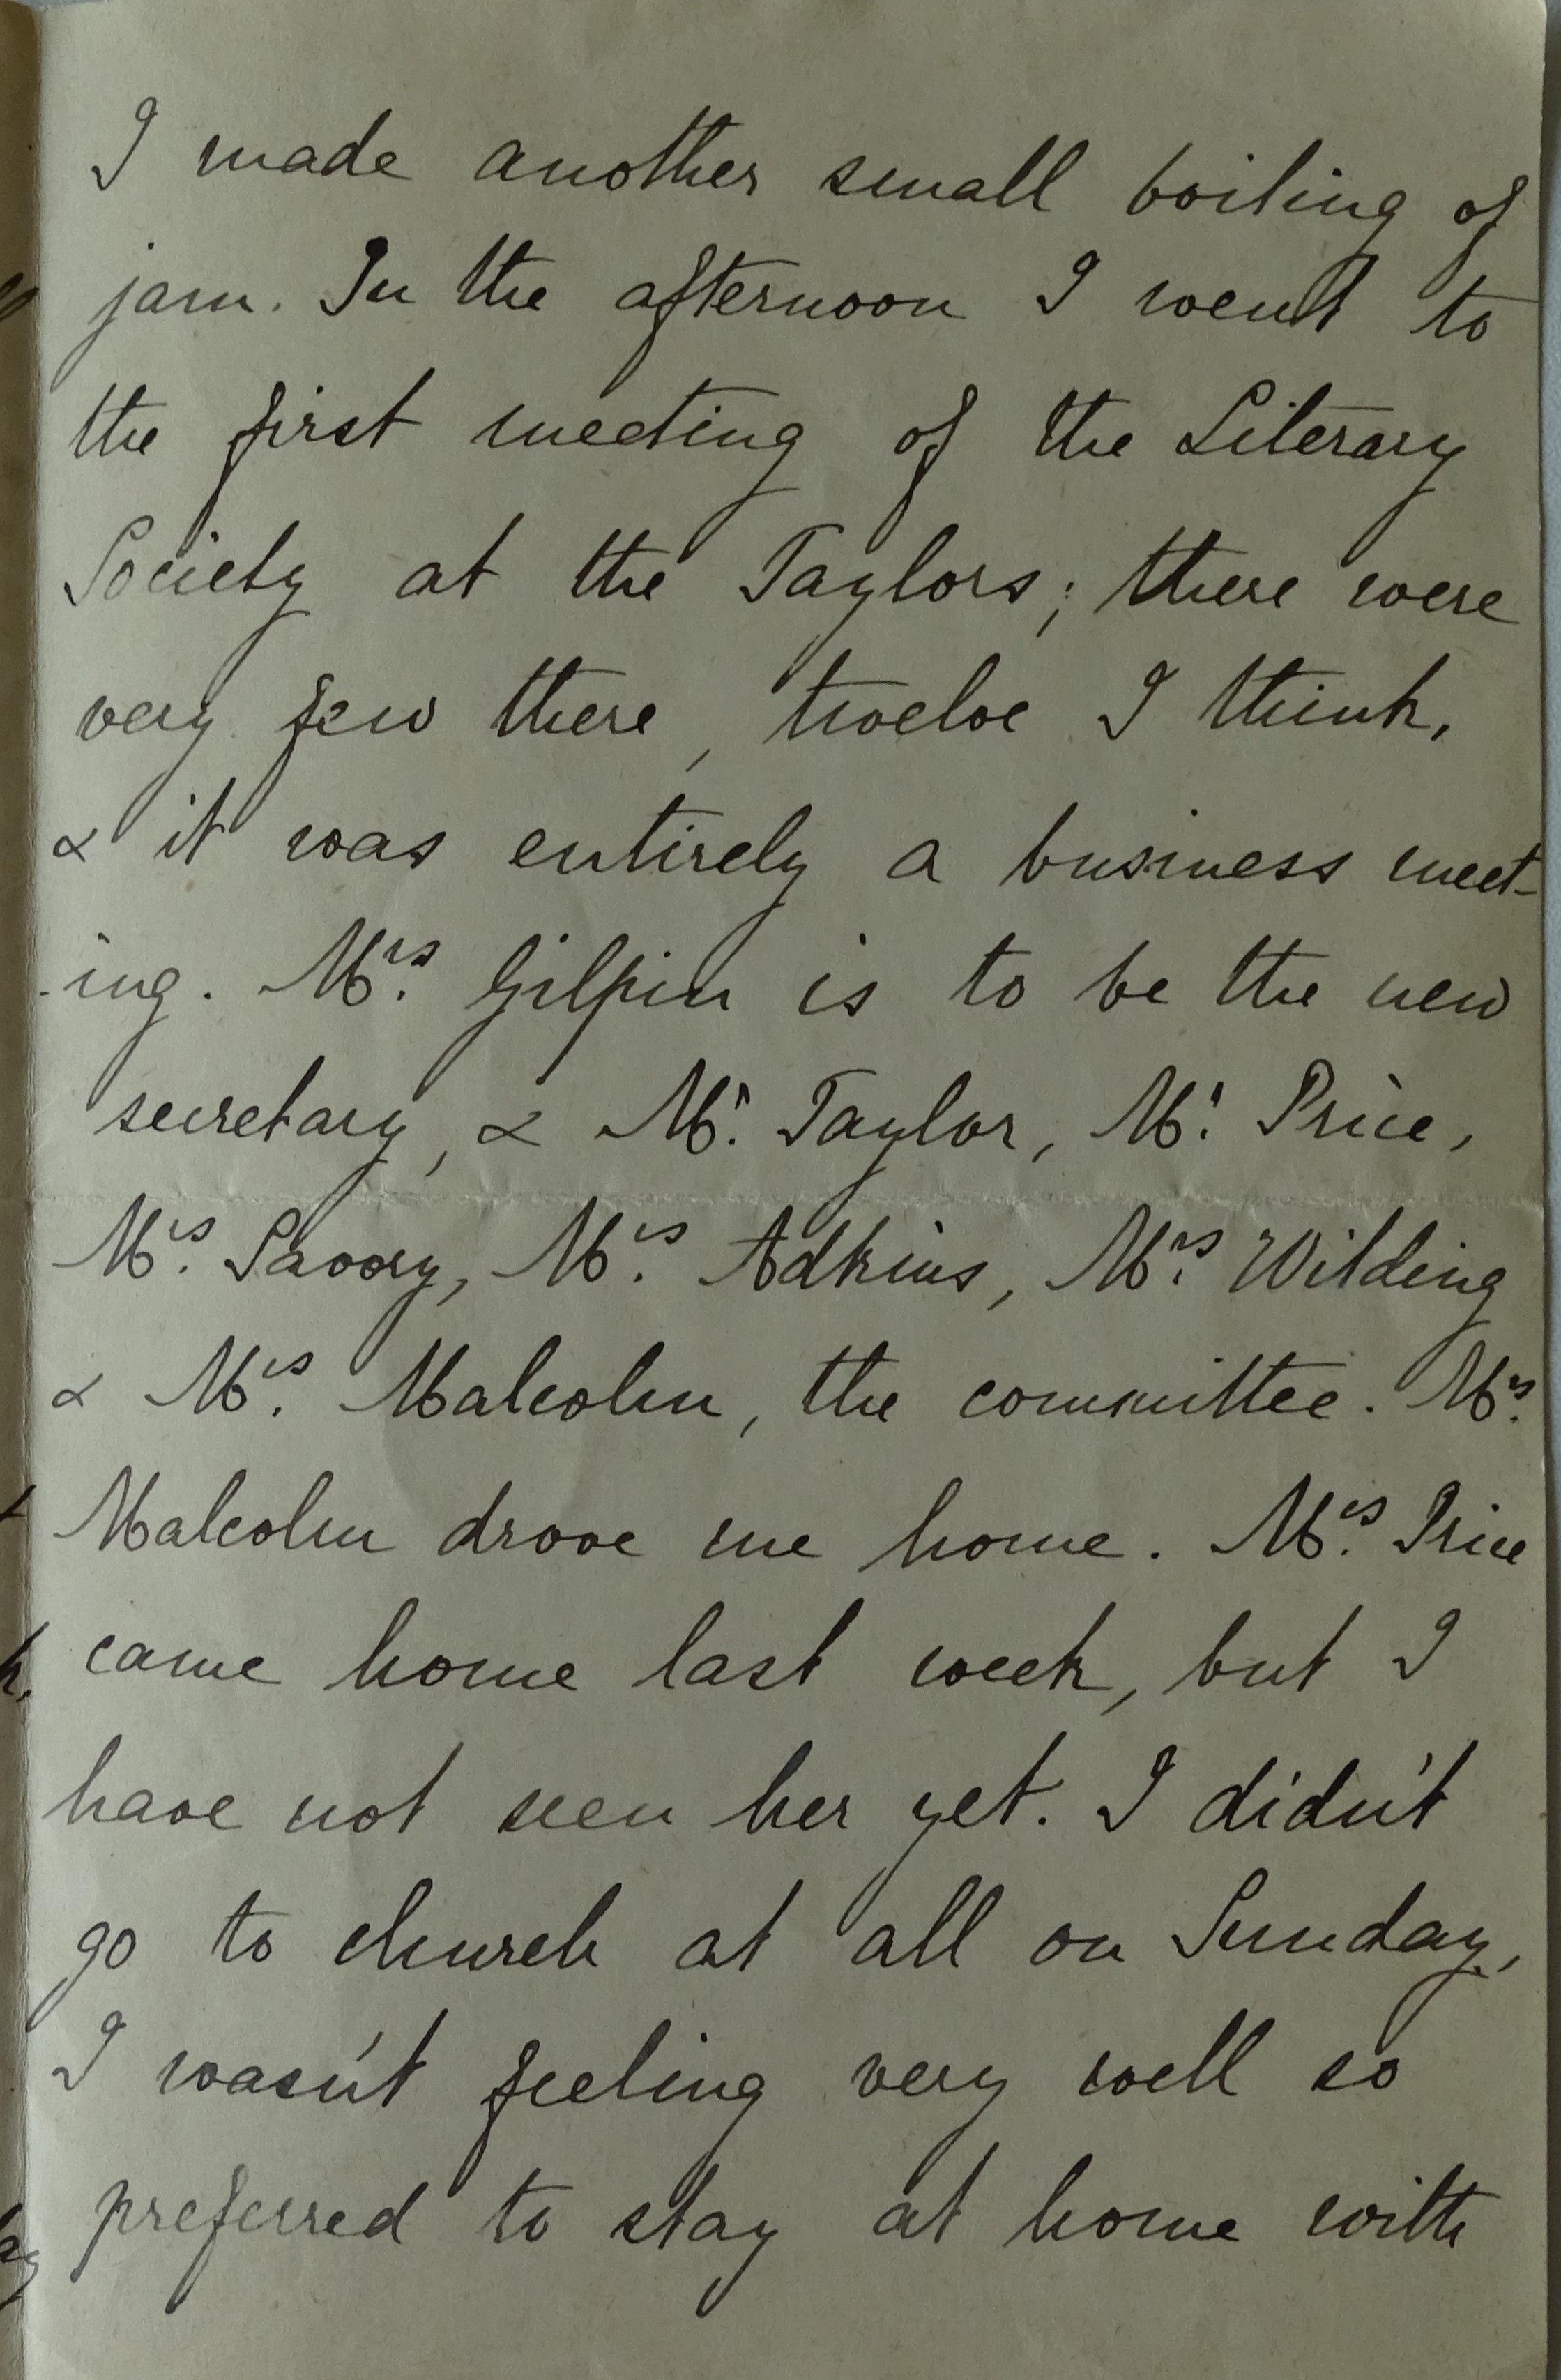 I made another small boiling of
jam. In the afternoon I went to
the first meeting of the Literary
Society at the Taylors; there were
very few there, twelve I think,
& it was entirely a business meet-
-ing. Mrs. Gilpin is to be the new
secretary, & Mr. Taylor, Mr. Price,
Mrs. Savory, Mrs. Adkins, Mrs. Wilding
& Mrs. Malcolm, the committee. Mrs.
Malcolm drove me home. Mrs. Price
came home last week, but I
have not seen her yet. I didn't
go to church at all on Sunday,
I wasn't feeling very well so
preferred to stay at home with